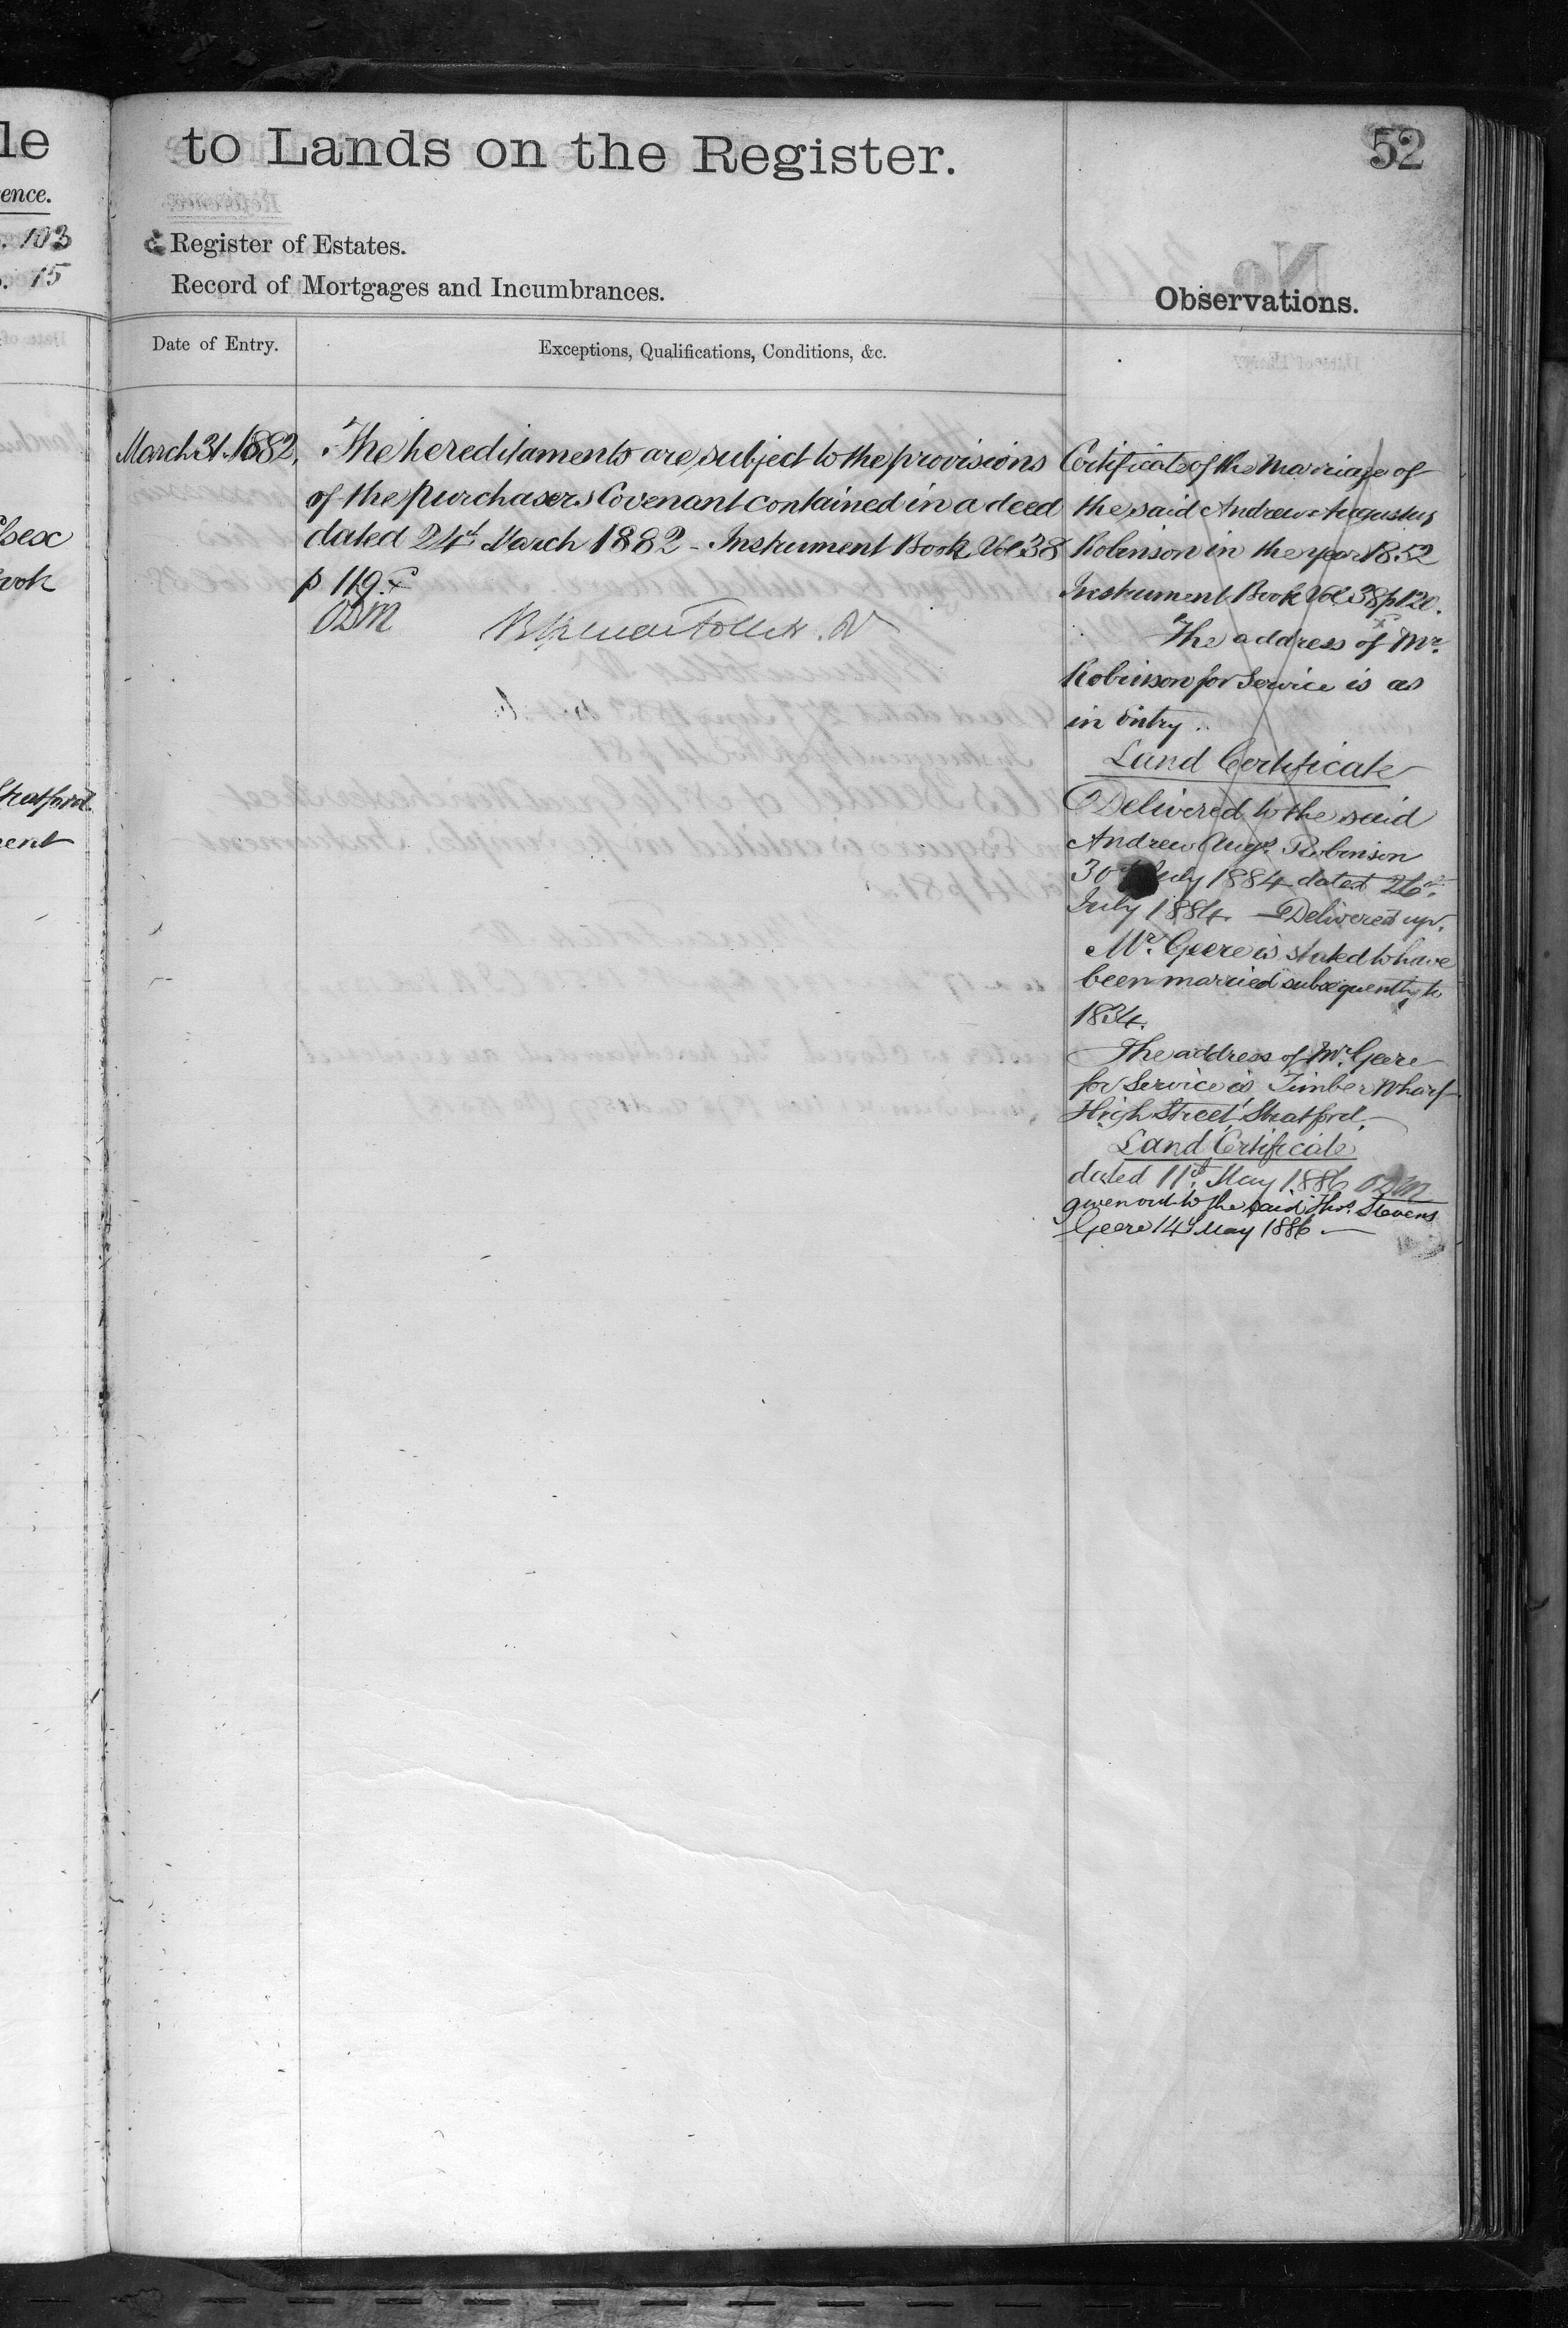 le
ence.
103
15
sex
ook
Stratford.
ment
to Lands on the Register.
52
Register of Estates.
Record of Mortgages and Incumbrances.
Observations.
Date of Entry.
Exceptions, Qualifications, Conditions, &c.
March 31. 1882.
The hereditaments are subject to the provisions
of the purchasers Covenant contained in a deed
dated 24th March 1882 - Instrument Book Vol 38
p 119.
Certificate of the Marriage of
the said Andrew Augustus
Robinson in the year 1852
Instrument Book Vol 38 p 120.
The address of Mr.
Robinson for Service is as
in Entry.
Land Certificate
Delivered to the said
Andrew Augs. Robinson
30th July 1884 dated 26th
July 1884. Delivered up.
Mr. Geere is stated to have
been married subsequently to
1834.
The address of Mr. Geere
for Service is Timber Wharf
High Street, Stratford.
Land Certificate
dated 11th May 1886
given out to the said Thos. Stevens
Geere 14th May 1886